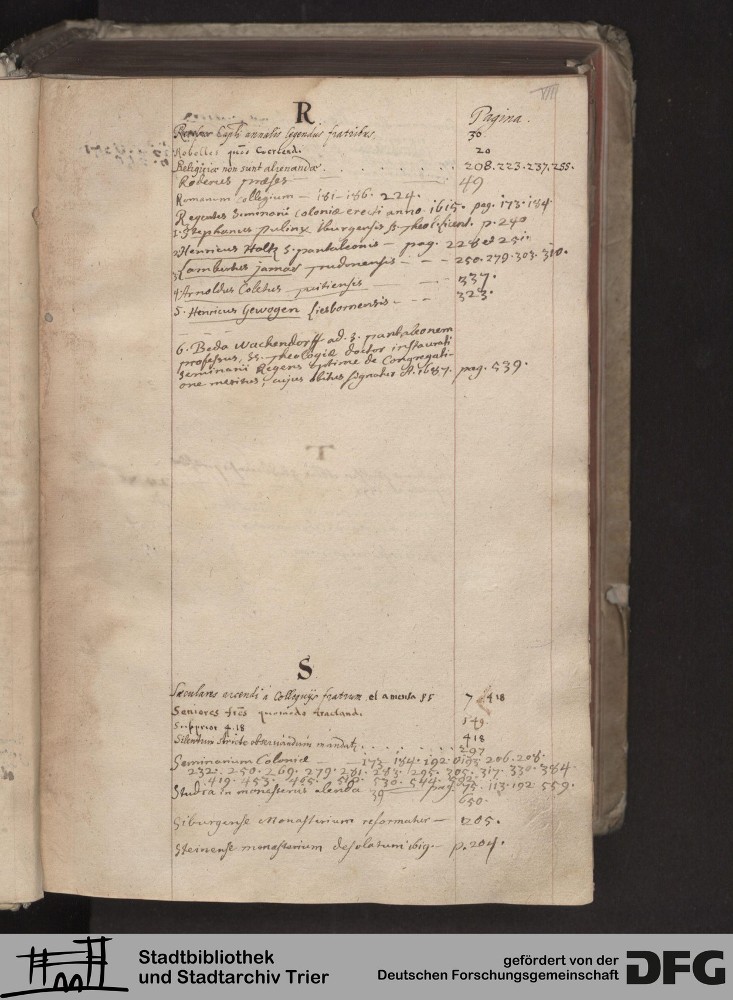 VIII
R
Pagina.
Capli annales legendus fratribus. 30.
Rebelles quo Coercendi 20
Religiosae non sunt alienandae . . . . . . . 208. 223. 237. 255.
praeses 49
Romanum Collegium — 181–186. 224.
Regentes Seminarii Coloniae erecti anno 1615. pag. 173. 184
1. Stephanus iburgensis p. 240
2 Henricus Holtz S. pantaleonis — pag. 228 et 251.
3 Lambertus — — 250. 279. 303. 310.
4 Arnoldus — 337.
5. Henricus Gewogen liesbornensis — 323.
6. Beda Wachendorff ad S. pantaleonem
professus, SS. Theologiae doctor instaurati
Seminarii Regens optime de Congregati-
one meritus, cujus obitus signatur A. 1687. pag. 539.
S
Saeculares arcendi à Colloquijs fratrum et a mensa 7 418
Seniores quomodo tractandi 149.
Supprior 4.18
Silentium stricte observandum mandat. . . . . . . 418
297
Seminarium Coloniae — 173. 184. 192. 195. 206. 208.
232. 250. 269. 279. 281. 283. 295. 305. 317. 330. 384
419. 453. 465. 510. 530. 544. 582.
Studia in monasteriis alenda 39 pag. 75. 113. 192. 559.
650.
Siburgense Monasterium reformatur — 205.
Steinense monasterium desolatum 1619. — p. 204.
Stadtbibliothek
und Stadtarchiv Trier
gefördert von der
Deutschen Forschungsgemeinschaft
DFG